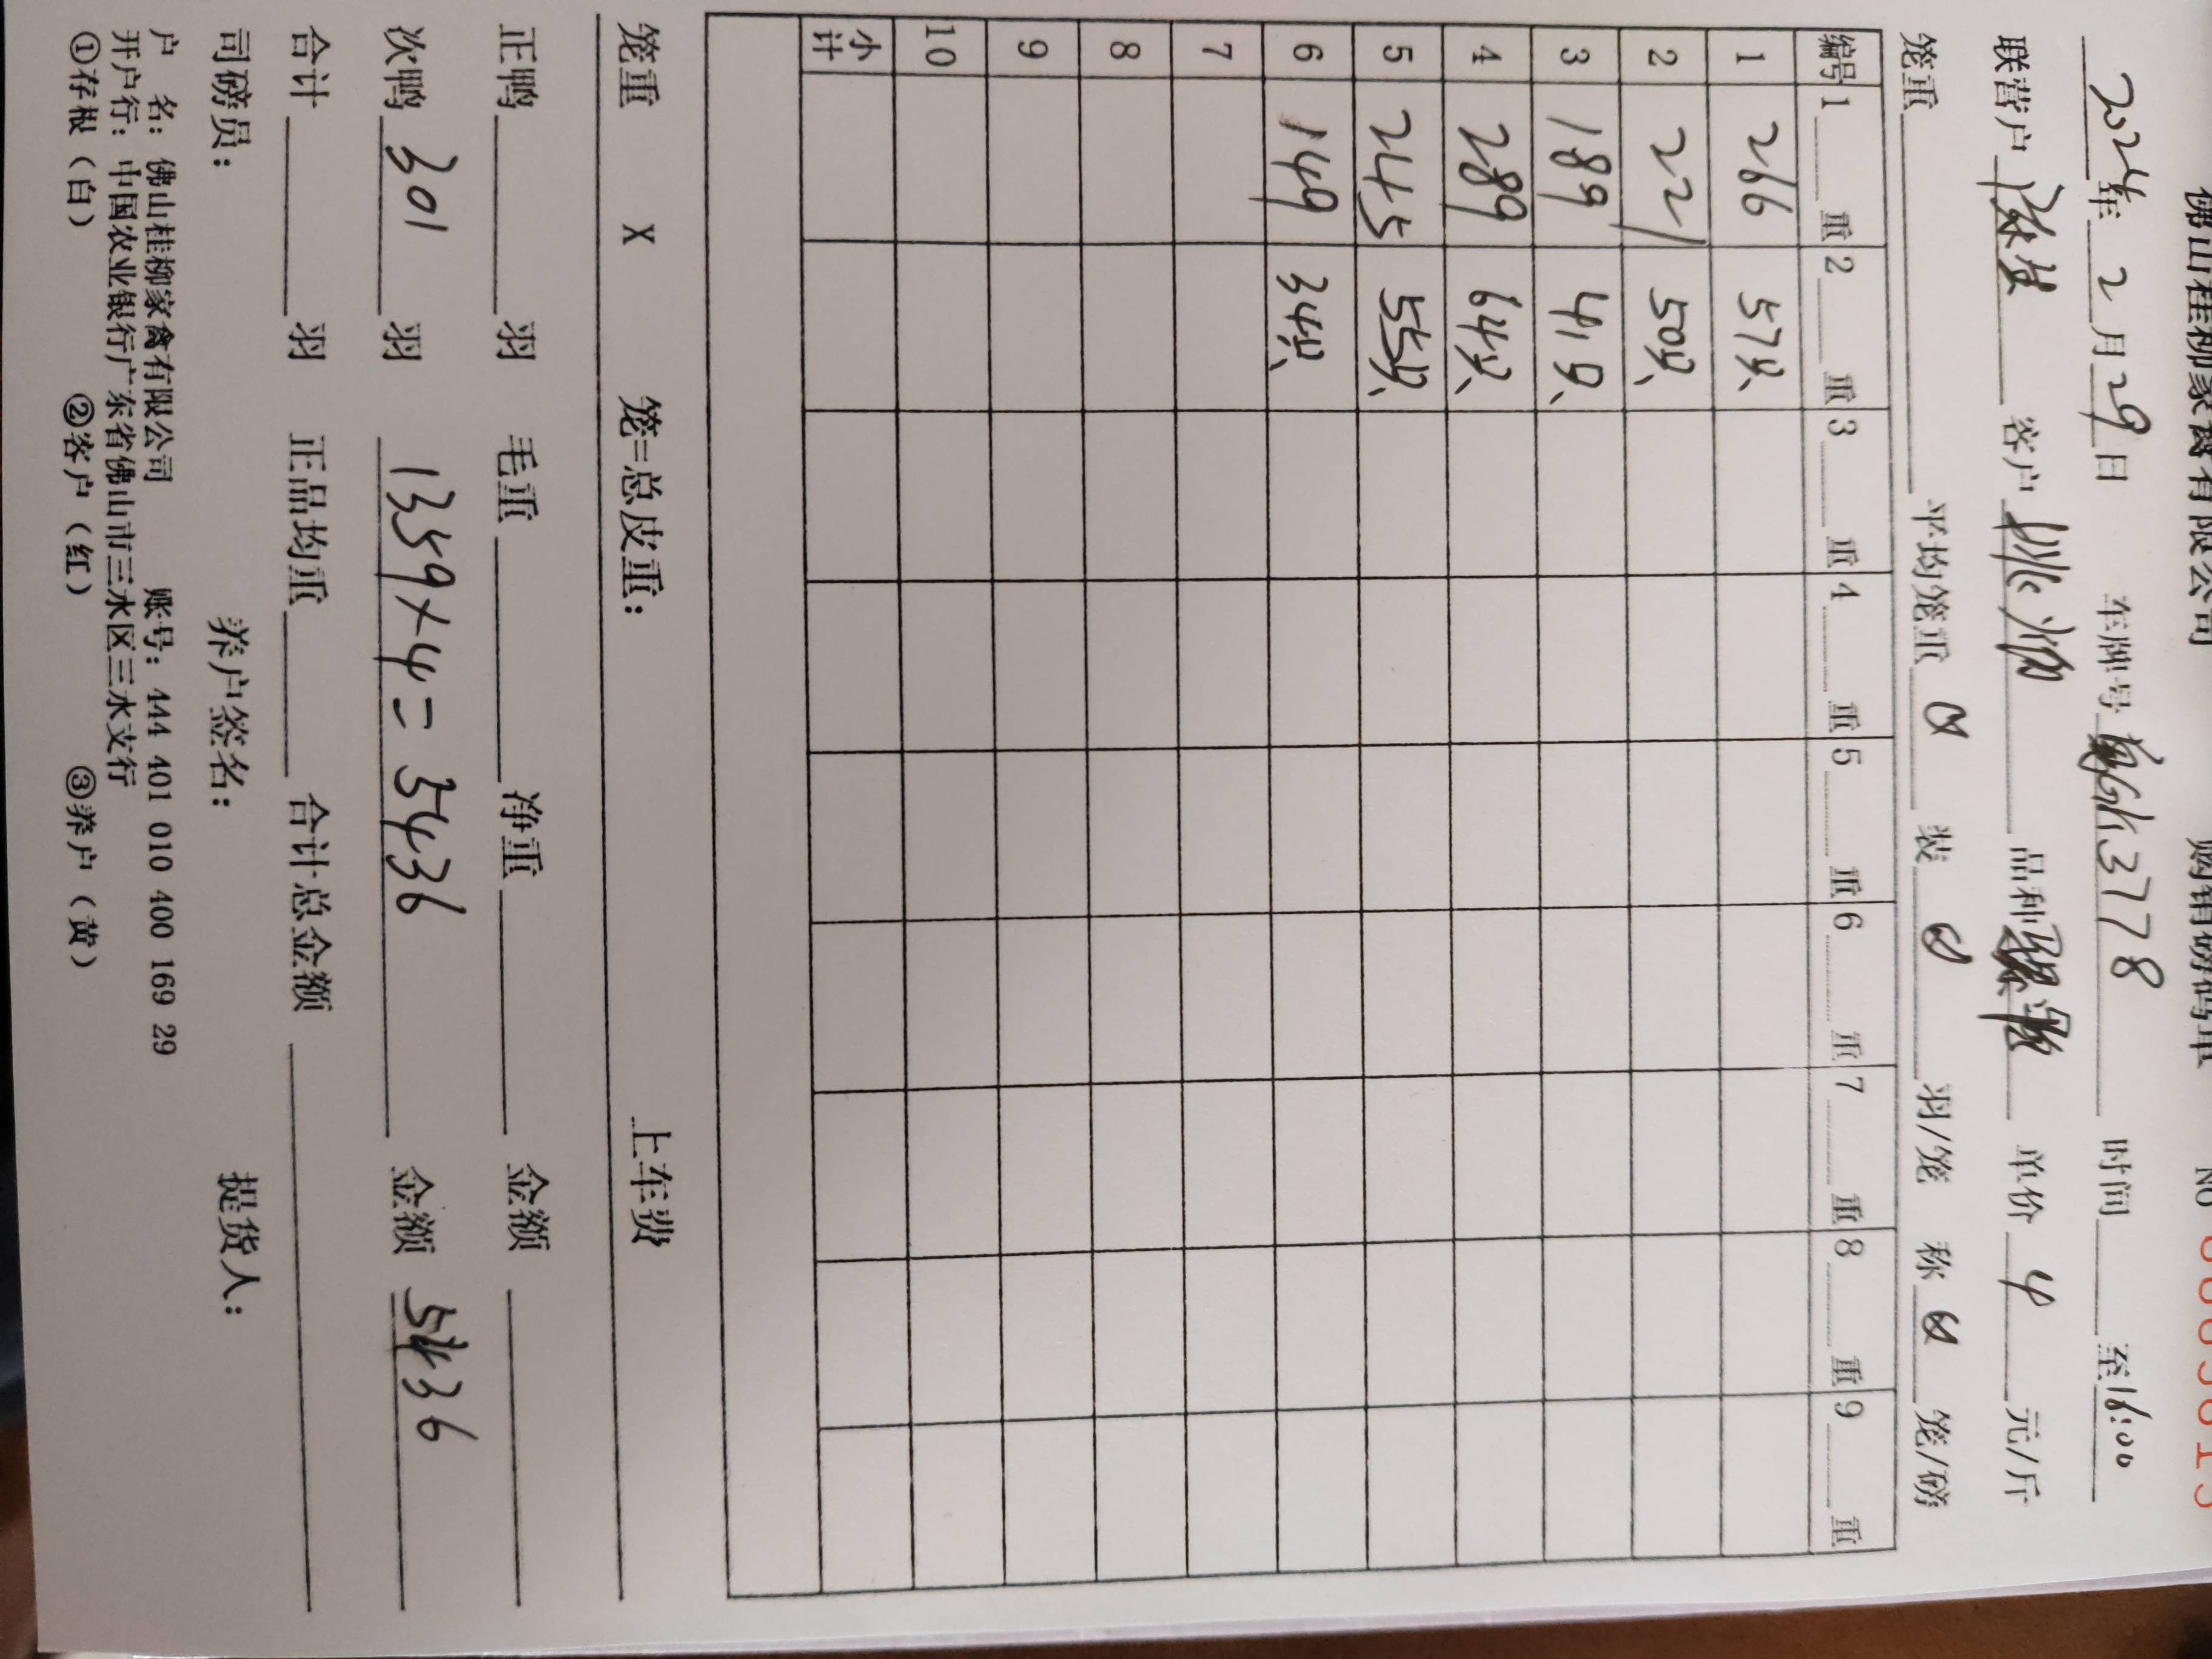 佛山桂柳家禽有限公司 购销磅码单 NO
2024年2月29日 车牌号 GK3778 时间 至16:00
联营户 客户 品种 单价 4 元/斤
笼重 平均笼重 装 羽/笼 称 笼/磅
编号 1 重 2 重 3 重 4 重 5 重 6 重 7 重 8 重 9 重
1 266 57只
2 221 50只
3 189 41只
4 289 64只
5 245 55只
6 149 34只
7
8
9
10
小计
笼重 X 笼=总皮重: 上车费
正鸭 羽 毛重 净重 金额
次鸭 301 羽 1359×4=5436 金额 5436
合计 羽 正品均重 合计总金额
司磅员: 养户签名: 提货人:
户 名: 佛山桂柳家禽有限公司 账号: 444 401 010 400 169 29
开户行: 中国农业银行广东省佛山市三水区三水支行
①存根(白) ②客户(红) ③养户(黄)